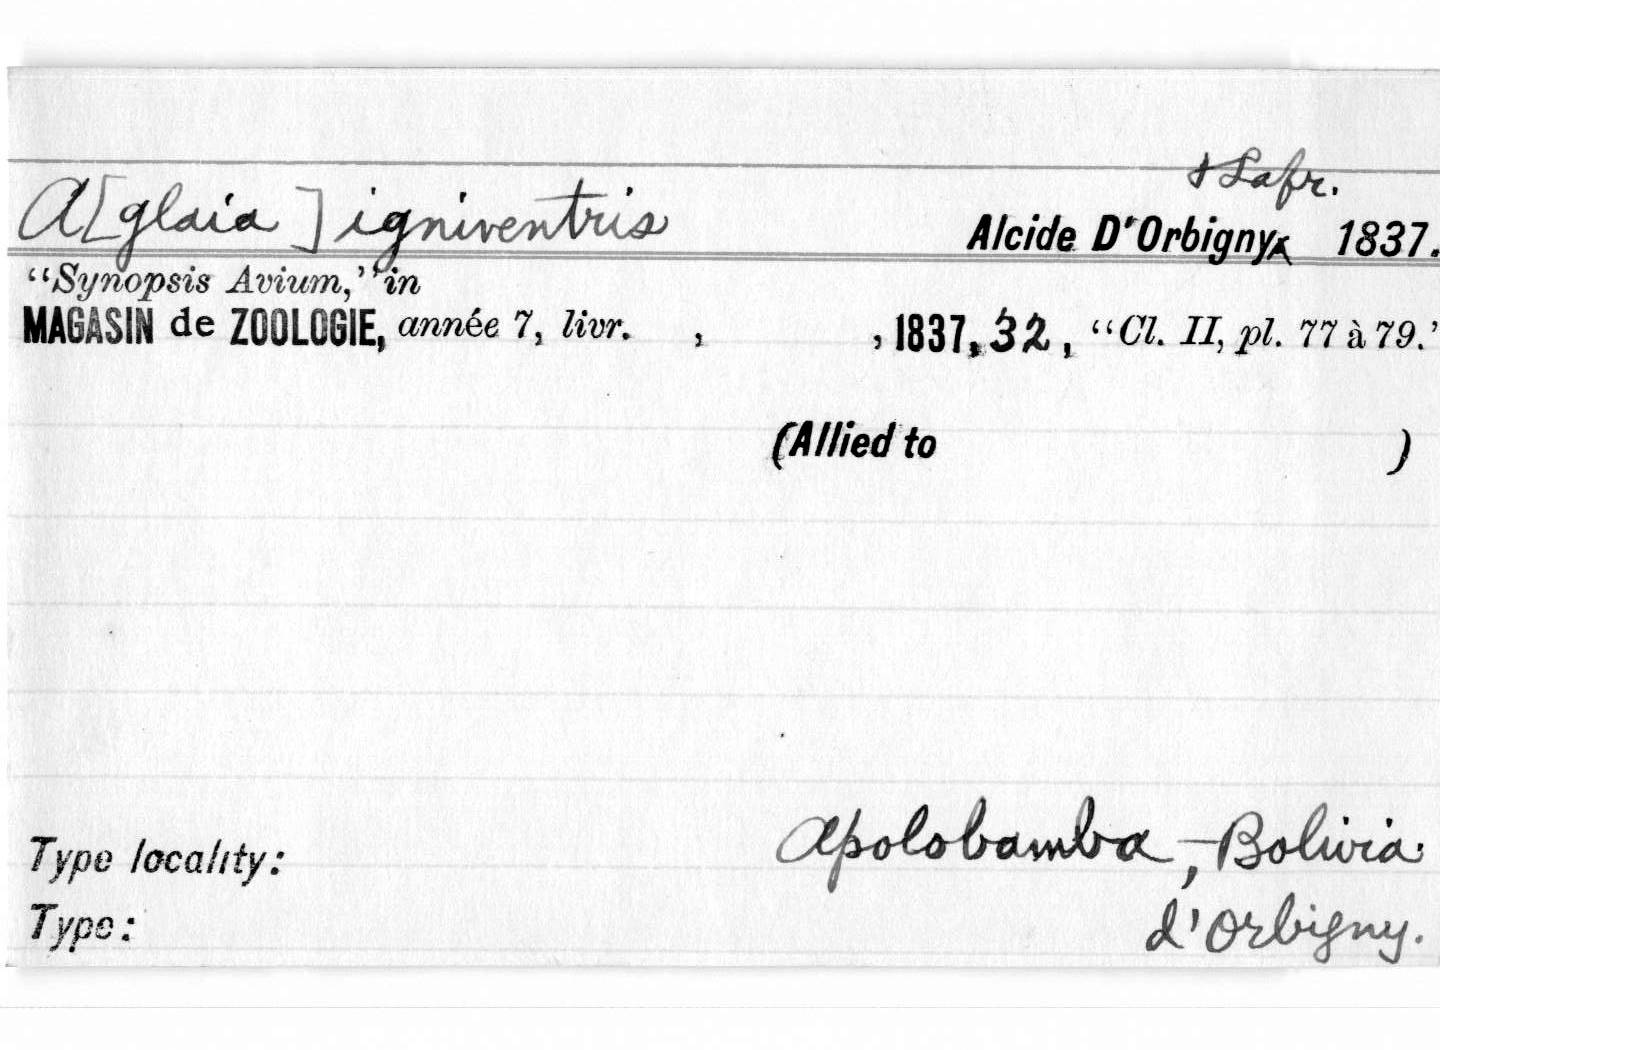 & Lafr.
A[glaia ] igniventris Alcide D'Orbigny‸ 1837.
"Synopsis Avium," in
MAGASIN de ZOOLOGIE, année 7, livr. , , 1837, 32, "Cl. II, pl. 77 à 79.'
(Allied to )
Type locality: Apolobamba, - Bolivia.
Type: d'Orbigny.